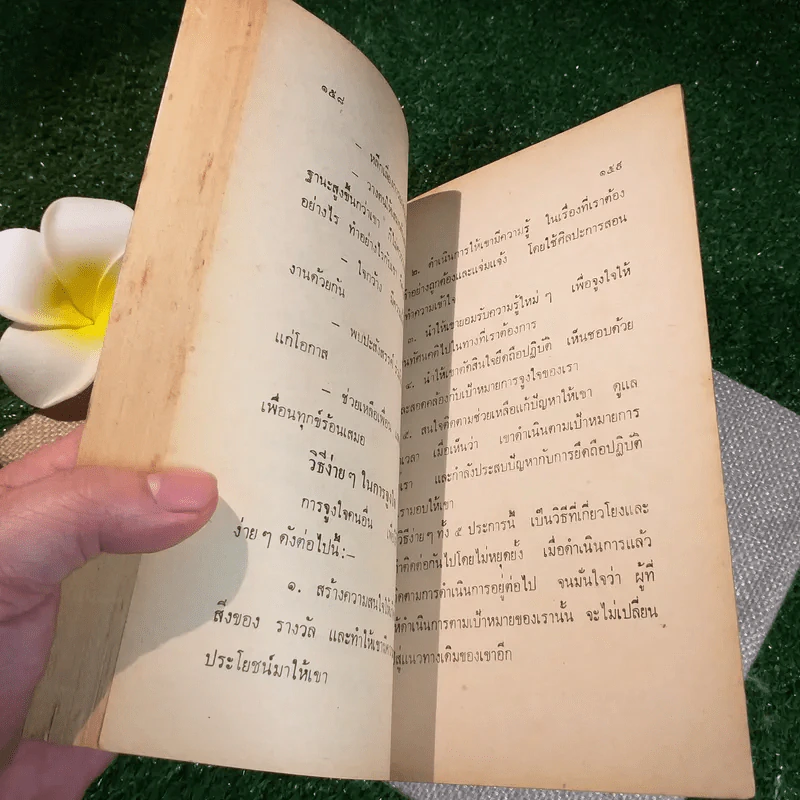 ๑๕๘
–
– วางตน
ฐานะสูงขึ้นกว่าเขา
อย่างไร ทำอย่างไร
– ใจกว้าง
งานด้วยกัน
– พบปะสังสรรค์
แก่โอกาส
– ช่วยเหลือเพื่อน
เพื่อนทุกข์ร้อนเสมอ
วิธีง่าย ๆ ในการจูงใจ
การจูงใจคนอื่น
ง่าย ๆ ดังต่อไปนี้:–
๑. สร้างความสนใจให้
สิ่งของ รางวัล และทำให้เขา
ประโยชน์มาให้เขา
๑๕๙
๒. ดำเนินการให้เขามีความรู้ ในเรื่องที่เราต้อง
อย่างถูกต้องและแจ่มแจ้ง โดยใช้ศิลปะการสอน
ทำความเข้าใจ
๓. นำให้เขายอมรับความรู้ใหม่ ๆ เพื่อจูงใจให้
ทัศนคติไปในทางที่เราต้องการ
๔. นำให้เขาตัดสินใจยึดถือปฏิบัติ เห็นชอบด้วย
และสอดคล้องกับเป้าหมายการจูงใจของเรา
๕. สนใจติดตามช่วยเหลือแก้ปัญหาให้เขา ดูแล
เวลา เมื่อเห็นว่า เขาดำเนินตามเป้าหมายการ
เรา และกำลังประสบปัญหากับการยึดถือปฏิบัติ
เรามอบให้เขา
วิธีง่ายๆ ทั้ง ๕ ประการนี้ เป็นวิธีที่เกี่ยวโยงและ
ติดต่อกันไปโดยไม่หยุดยั้ง เมื่อดำเนินการแล้ว
ติดตามการดำเนินการอยู่ต่อไป จนมั่นใจว่า ผู้ที่
ให้ดำเนินการตามเป้าหมายของเรานั้น จะไม่เปลี่ยน
สู่แนวทางเดิมของเขาอีก